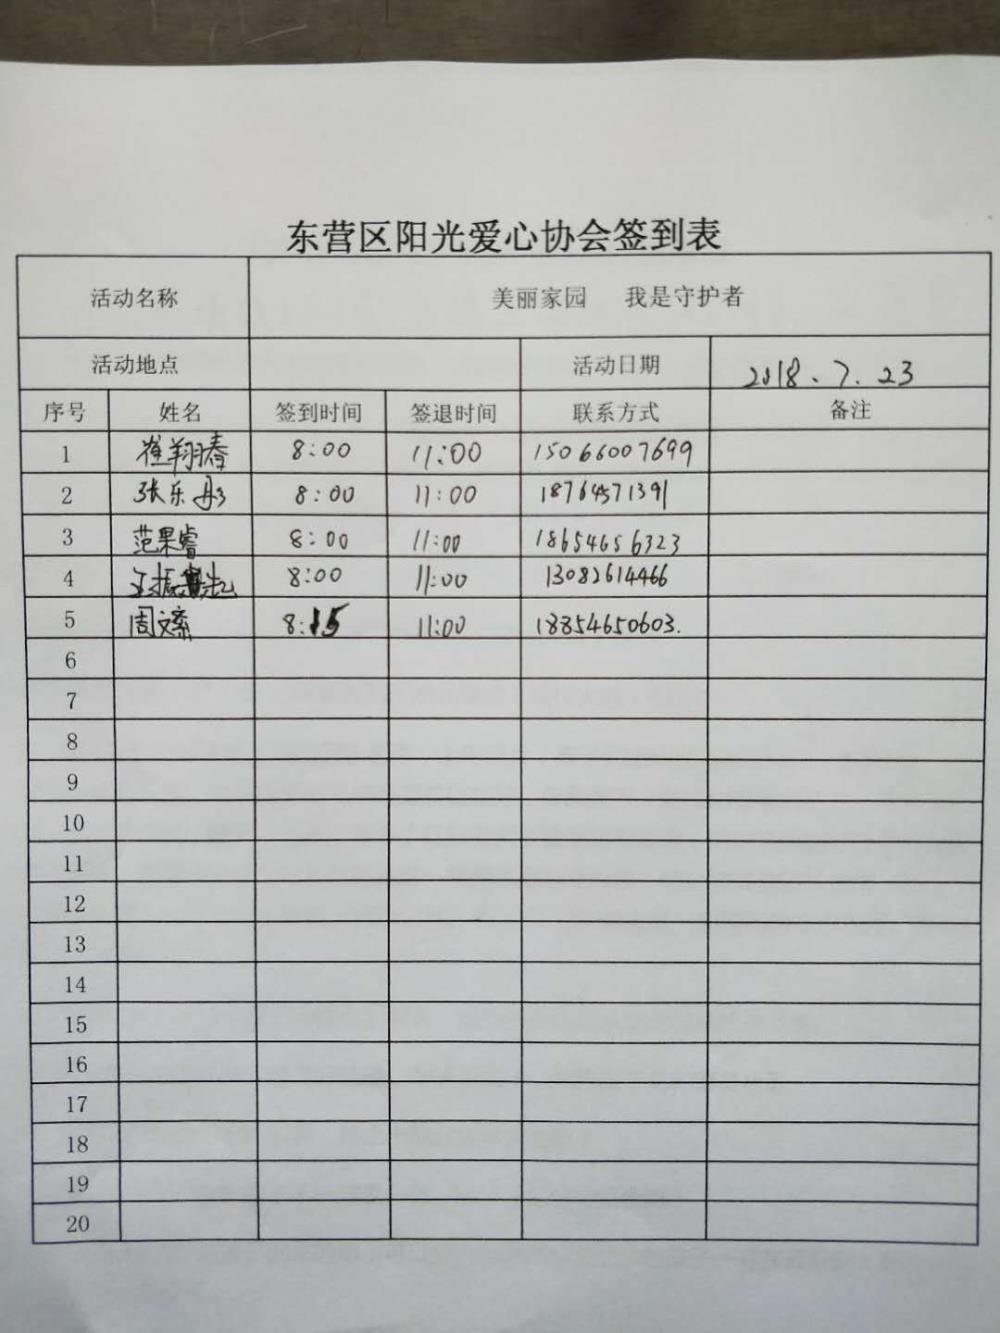 东营区阳光爱心协会签到表
活动名称 美丽家园 我是守护者
活动地点 活动日期 2018.7.23
序号 姓名 签到时间 签退时间 联系方式 备注
1 崔翔春 8:00 11:00 15066007699
2 张乐彤 8:00 11:00 18764571391
3 范果睿 8:00 11:00 18654656323
4 8:00 11:00 13082614466
5 周文 8:15 11:00 18854650603.
6
7
8
9
10
11
12
13
14
15
16
17
18
19
20